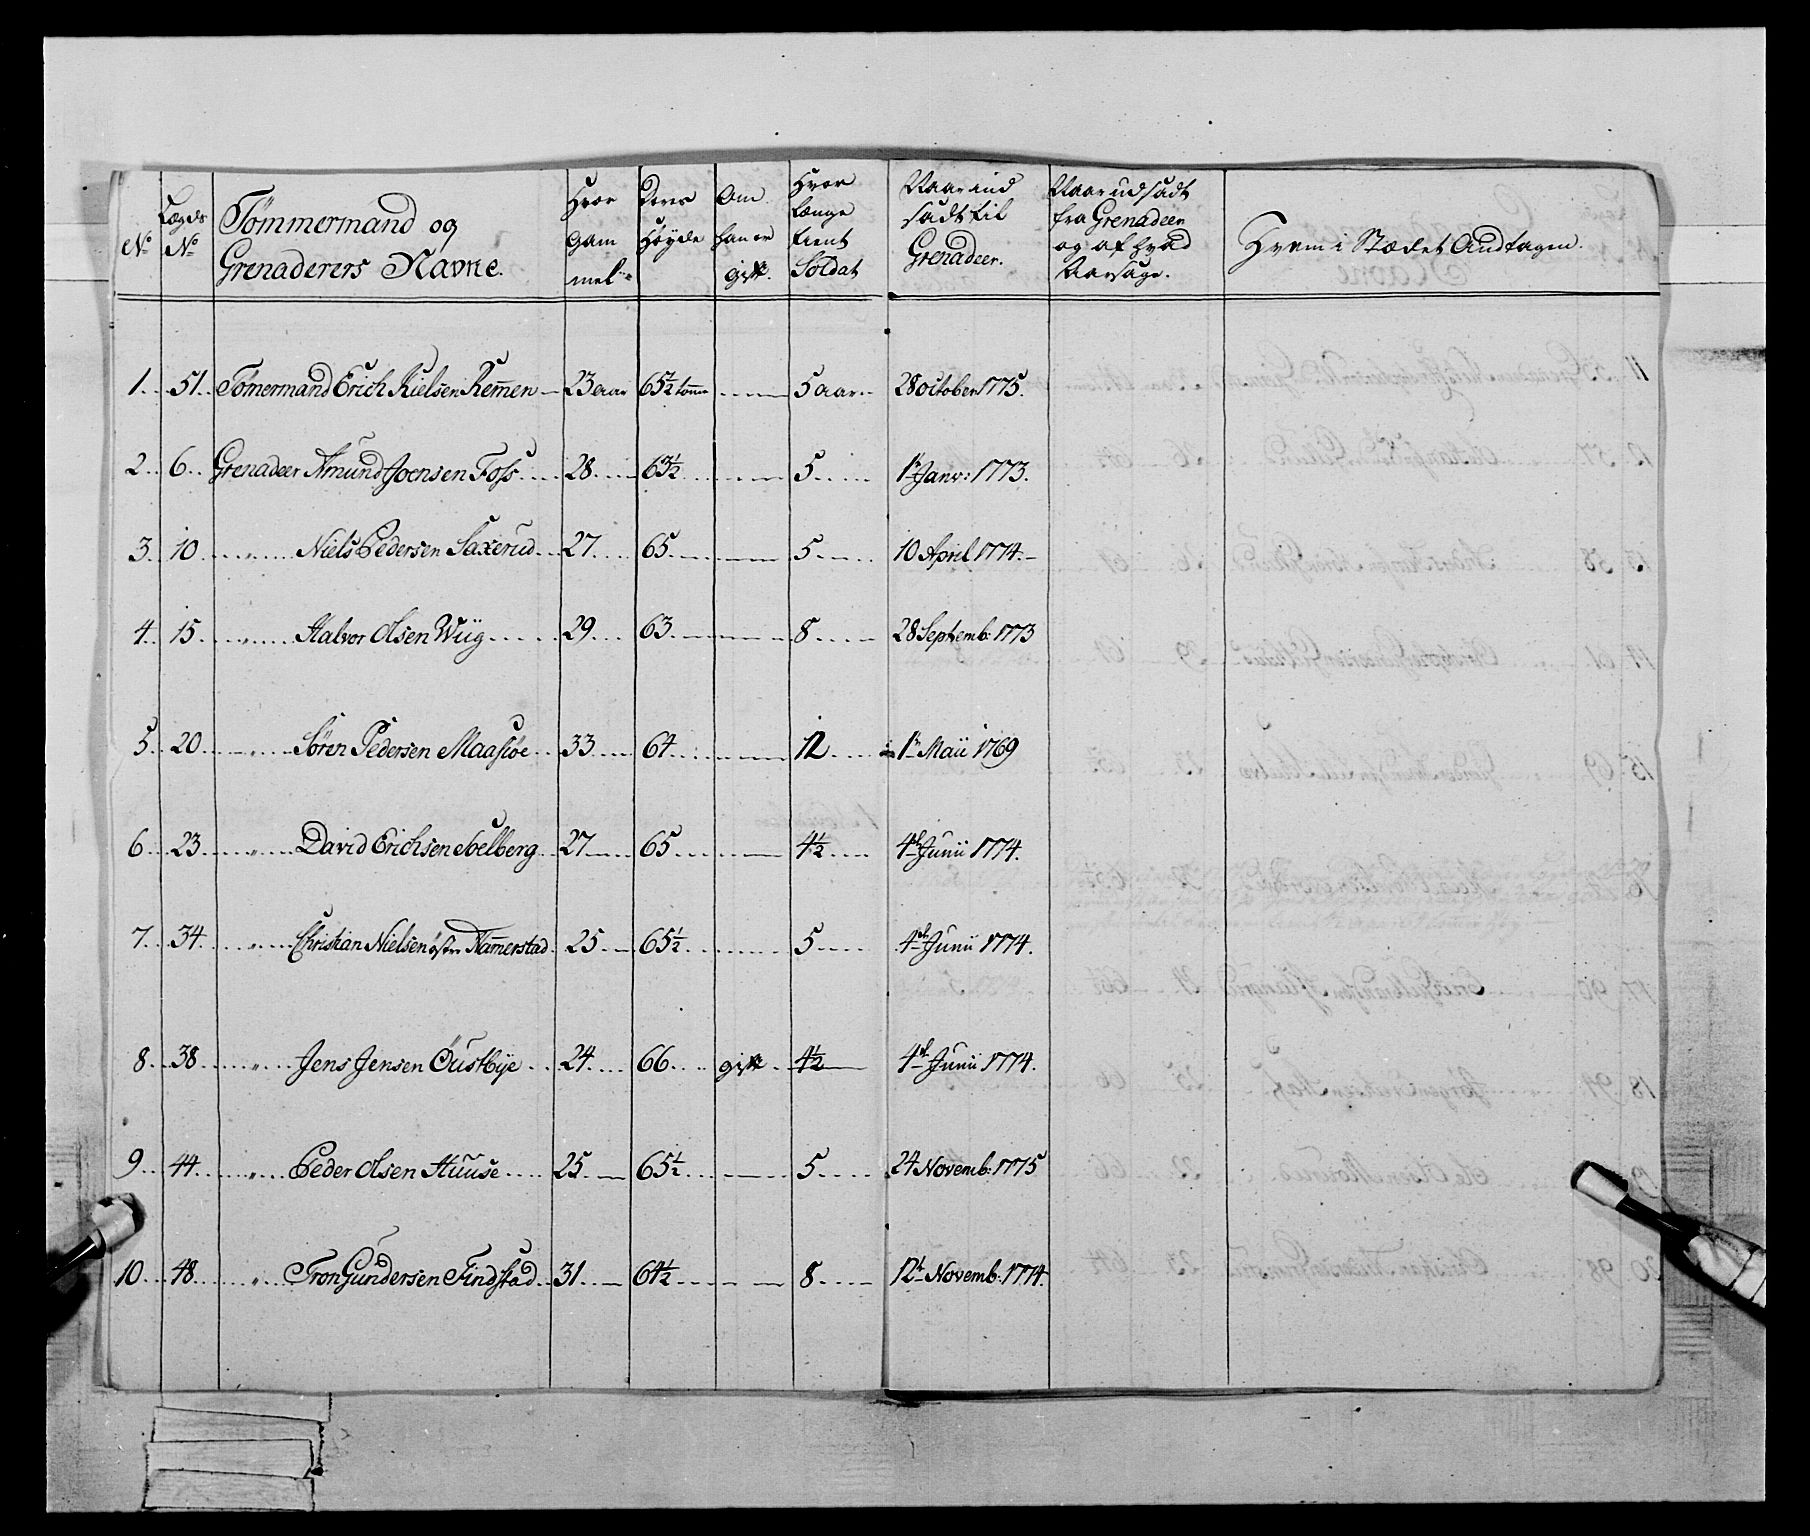 No
Lægds No
Tømmermand og Grenaderers Navne.
Hvor Gammel
Deres Høyde
Om han er gift.
Hvor længe tient Soldat
Naar indsadt til Grenadeer.
Naar udsadt fra Grenadeer og af hvad Aarsage.
Hvem i Stædet Andtagen.
1. 51. Tømermand Erich Nielsen Remen 23 aar 65½ tomme 5 aar 28 october 1775.
2. 6. Grenadeer Amund Joensen Foss 28. 63½ 5 1te Janv: 1773.
3. 10 " Niels Pedersen Saxerud 27. 65 5 10 April 1774.
4. 15. " Halvor Olsen Wiig 29. 63. 8 28 Septemb: 1773
5. 20 " Sören Pedersen Maasiøe 33 64 12 1te Maii 1769
6. 23 " David Erichsen Soelberg 27 65 4½ 4de Junii 1774.
7. 34. " Christian Nielsen østre Namerstad 25 65½ 5 4de Junii 1774.
8. 38. " Jens Jensen Oustbÿe 24. 66. gift 4½ 4de Junii 1774.
9. 44. " Peder Olsen Huuse 25. 65½ 5 24 Novemb: 1775
10. 48. " Tron Gundersen Findstad 31. 64½ 8 12te Novemb: 1774.